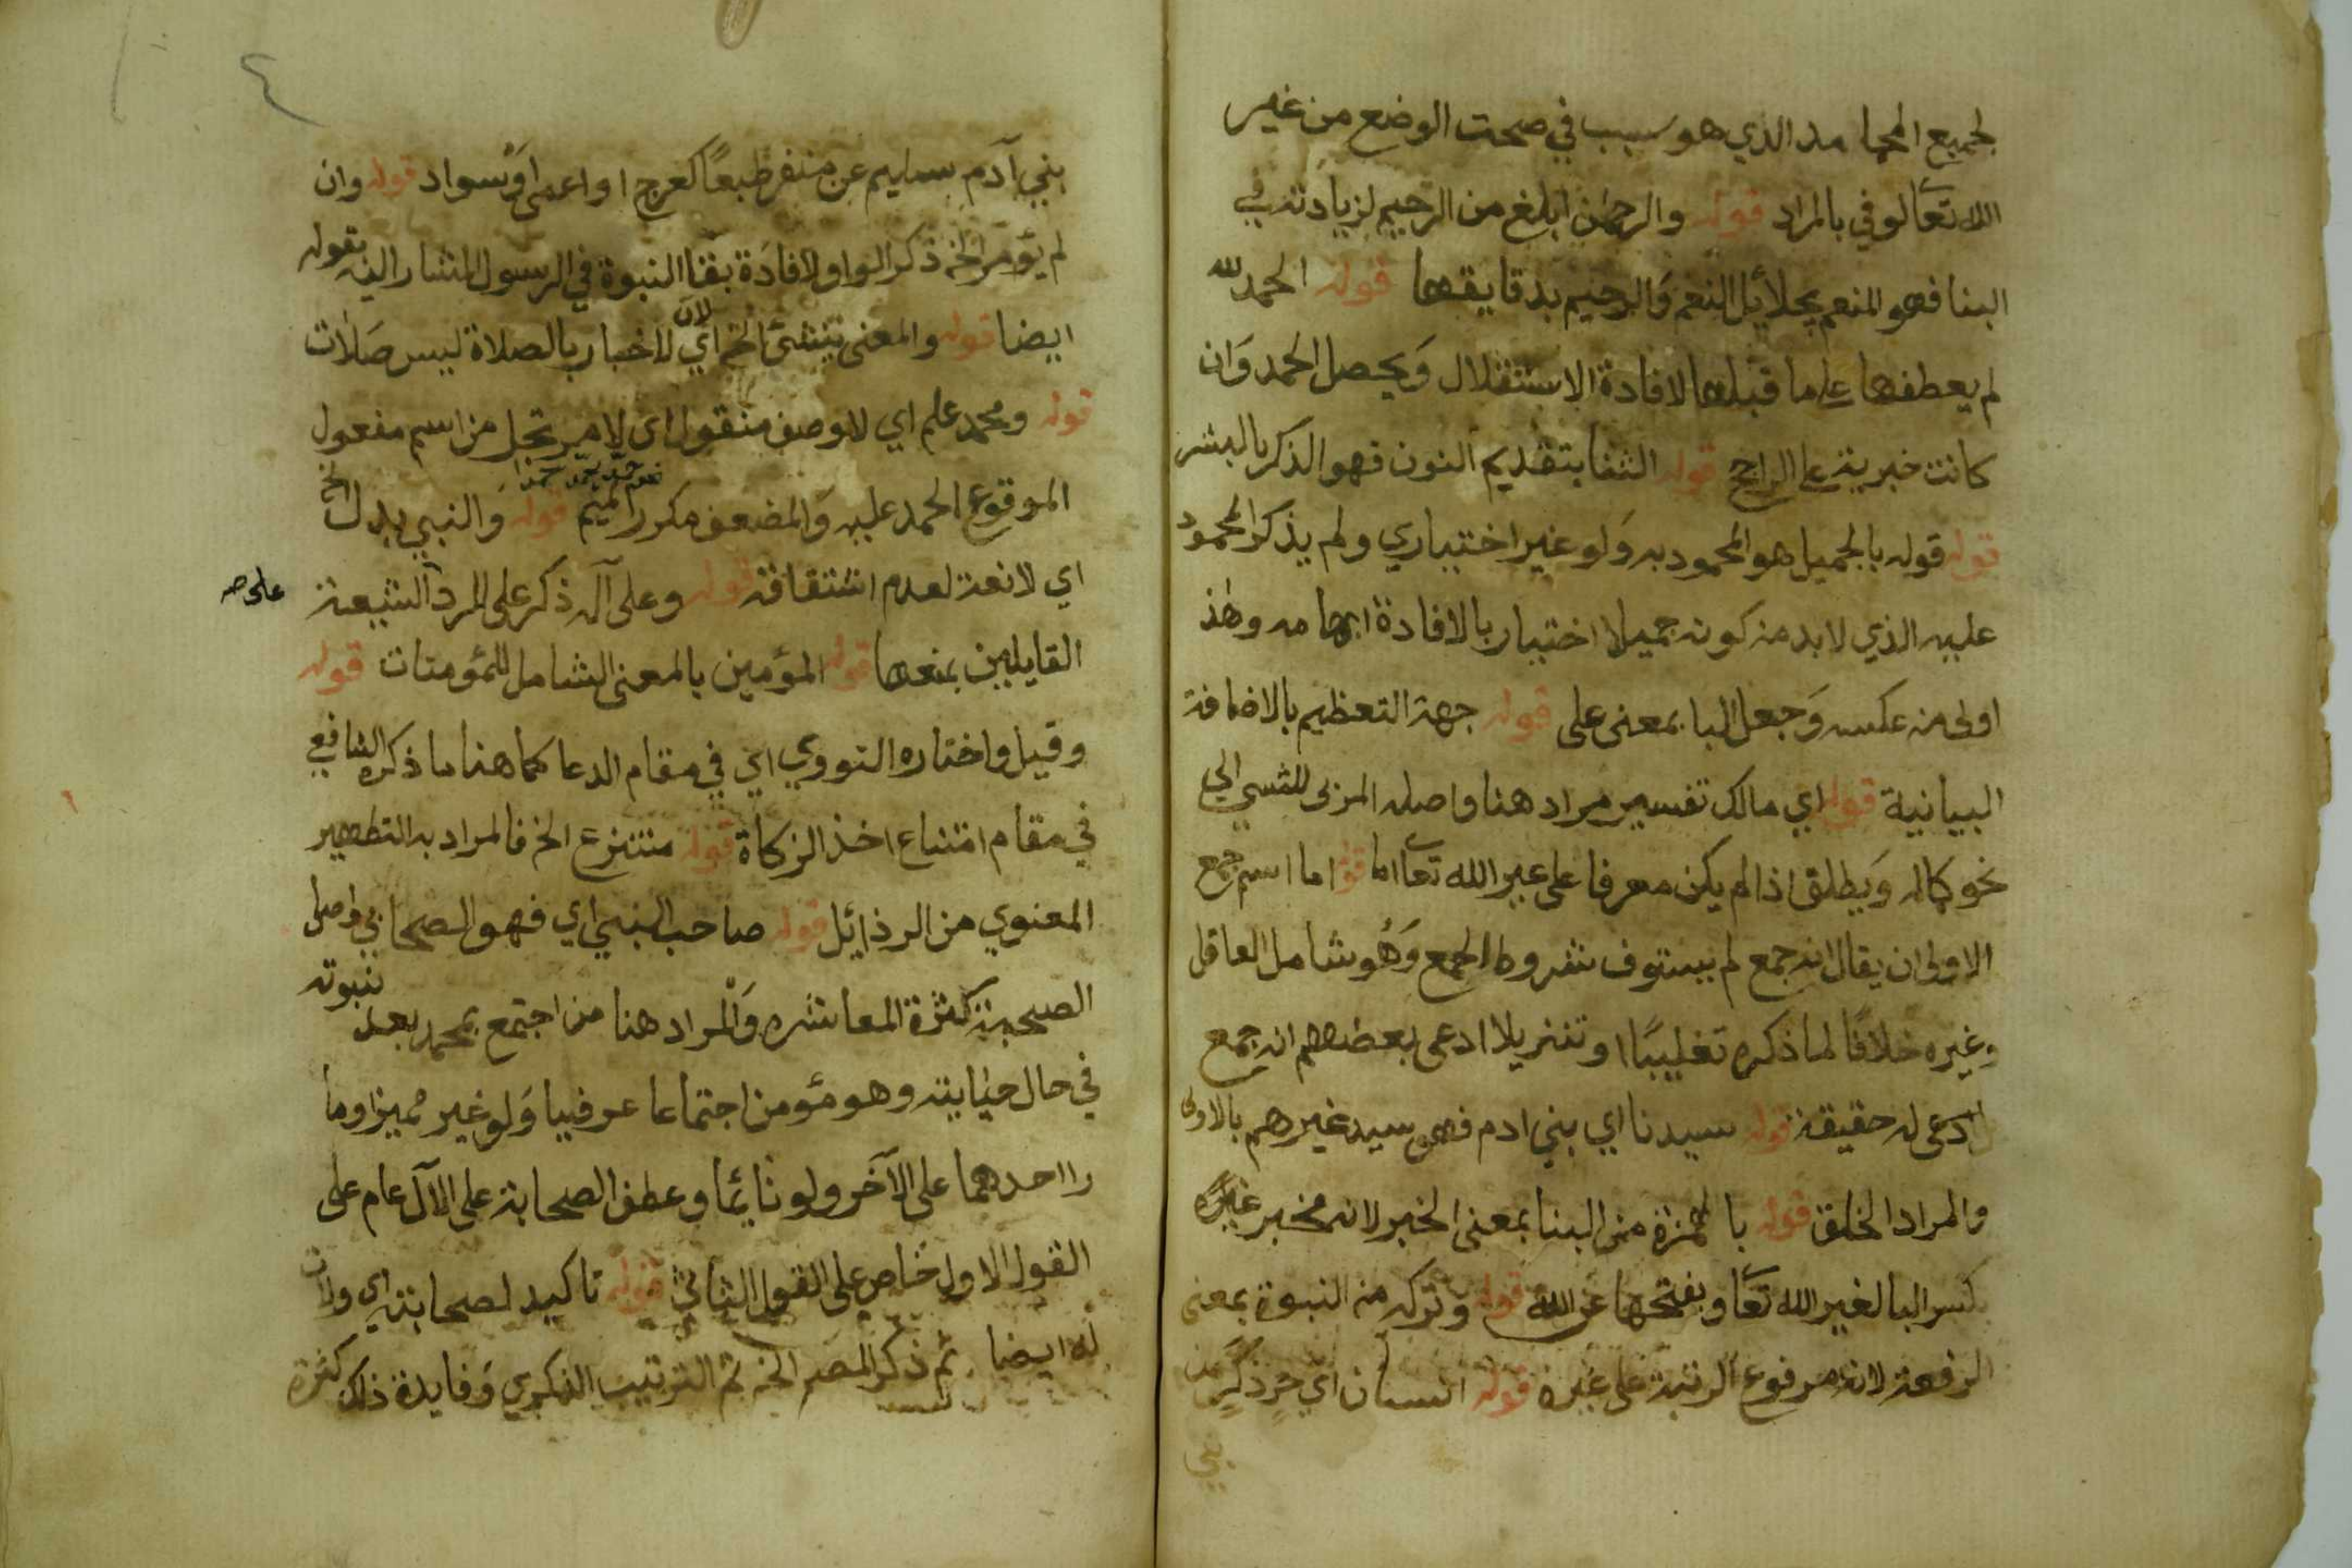 لجميع المحامد الذي هو سبب في صحت الوضع من غير
الله تعالو في بالمراد قوله والرحمن ابلغ من الرحيم لزيادته في
البنا فهو المنعم بجلائل النعم والرحيم بدقايقها قوله الحمد لله
لم يعطفها على ما قبلها لافادة الاستقلال ويحصل الحمد وان
كانت خبرية على الراجح قوله الثنا بتقديم النون فهو الذكر بالبشر
قوله قوله بالجميل هو المحمود به ولو غير اختياري ولم يذكر المحمود
عليه الذي لا بد من كونه جميلا اختياريا لافادة ابهامه وهذ
اولى من عكسه وجعل البا بمعنى على قوله جهة التعظيم بالاضافة
البيانية قوله اي مالك تفسير مراد هنا واصله المربى للشي الي
نحو كماله ويطلق اذا لم يكن معرفا على غير الله تعا اما قوله اما اسم جمع
الاولى ان يقال انه جمع لم يستوف شروط الجمع وهو شامل العاقل
وغيره خلافا لما ذكره تغليبا او تنزيلا ادعى بعضهم انه جمع
ادعى له حقيقة قوله سيدنا اي بني ادم فهو سيد غيرهم بالاولى
والمراد الخلق قوله بالهمزة من البنا بمعنى الخبر لانه مخبر غيره
بكسر البا لغير الله تعا وبفتحها عن الله قوله وتركه من النبوة بمعنى
الرفعة لانه مرفوع الرتبة على غيره قوله انسان اي حر ذكر من
بني
٤
بني آدم سليم عن منفر طبعا كعرج او اعمى او سواد قوله وان
لم يؤمر الخ ذكر الواو لافادة بقا النبوة في الرسول المشار اليه بقوله
ايضا قوله والمعنى ننشئ الخ اي لان الاخبار بالصلاة ليس صلات
قوله ومحمد علم اي لا وصف منقول اي لا مرتجل من اسم مفعول
الموقوع الحمد عليه والمضعف مكرر الميم قوله والنبي بدل الخ
اي لا نعت لعدم اشتقاقه قوله وعلى آله ذكر على للرد الشيعة
على صـ
القايلين بمنعها قوله المؤمنين بالمعنى الشامل للمؤمنات قوله
وقيل واختاره النووي اي في مقام الدعا كما هنا ما ذكره الشافعي
في مقام امتناع اخذ الزكاة قوله منتزع الخ فالمراد به التطهير
المعنوي من الرذائل قوله صاحب النبي اي فهو الصحابي واصل
الصحبة كثرة المعاشره والمراد هنا من اجتمع بمحمد بعد نبوته
في حال حياته وهو مؤمن اجتماعا عرفيا ولو غير مميز او ما
را احدهما على الآخر ولو نائما وعطف الصحابة على الآل عام على
القول الاول خاص على القول الثاني قوله تاكيد لصحابته اي ولان
له ايضا ثم ذكر المصم الخ ثم الترتيب الذكري وفايدة ذلك كثرة